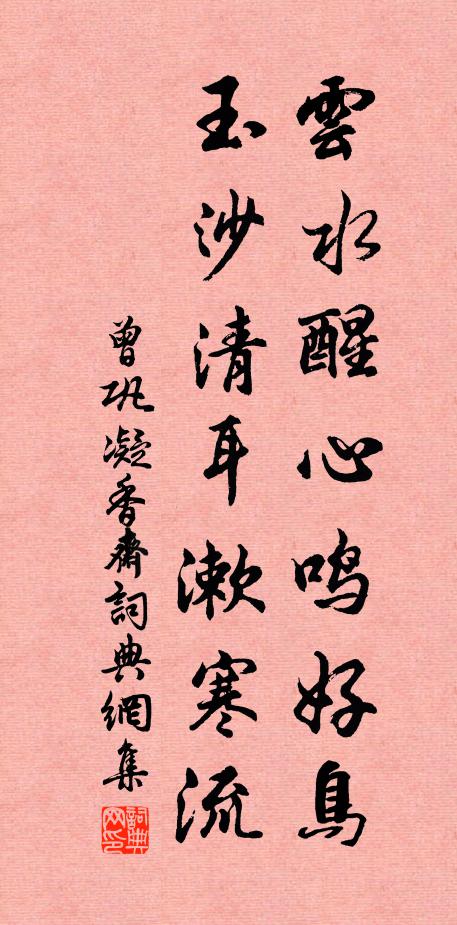 雲水醒心鳴好鳥
玉沙清耳漱寒流
曾巩凝香齋詞典網集
詞典网印